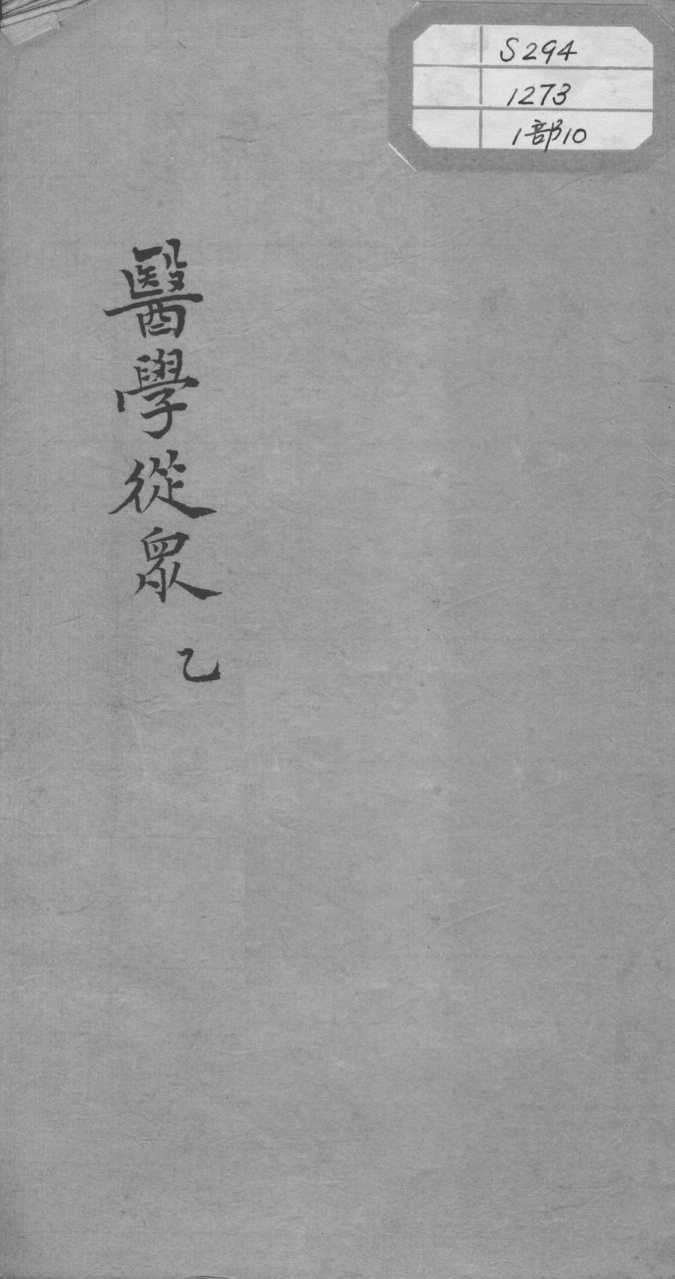 S294
1273
1部10
醫學從眾
乙